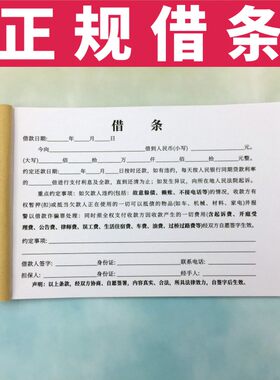 正规借条
借 条
借款日期:____年____月____日
今向____________借到人民币(小写)________元。
(大写)____佰____拾____万____仟____佰____拾____元整。
约定还款日期:____年____月____日按时还款，如有违约，每天按人民银行同期贷款利率
的____倍进行支付利息及全款，直到还清为止；如发生异议，向所在地人民法院起诉。
重点约定事项：如欠款人违约(包括：故意躲债、赖账、不接电话等)的情况，收款方有
权暂押(扣)或抵当欠款人正在使用的一切可以抵债的物品(如车、机械、材料、家电)并报
警以借款诈骗罪处理；同时全权支付收款方因收款产生的一切费用(含起诉费、开庭受
理费、公告费、律师费、误工费、生活住宿费、车费、油费、过桥过路费等)经双方自愿签字生效。
约定事项：
借款人签字：________身份证：________联系电话：________
担保人：________身份证：________经手人：________
声明：以上条款，经双方协商、自愿签署，内容真实、合法，所具法律效力，自签字后生效。